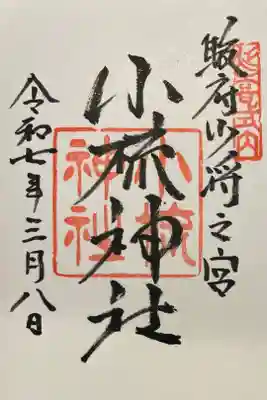 延喜式内
駿府少将之宮
小梳神社
小梳神社
令和七年三月八日